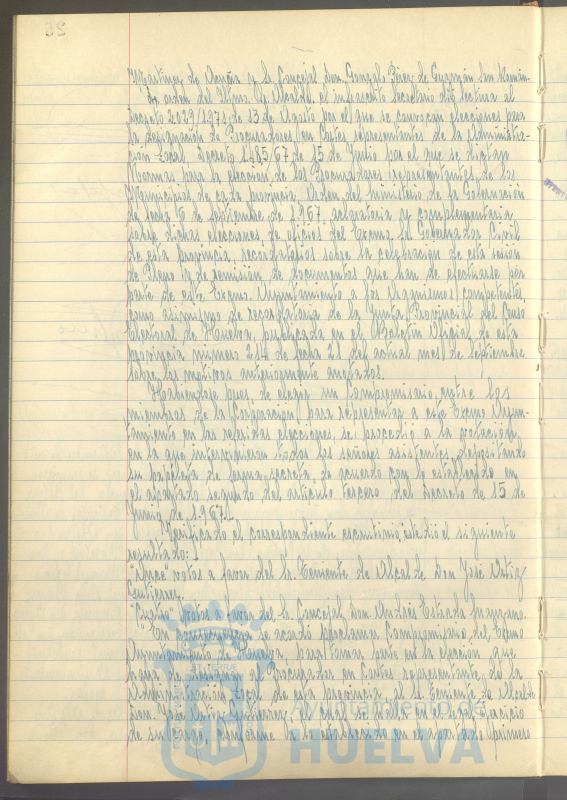 Martínez de Acuña y el Concejal Don Gonzalo Pérez de Guzmán San Román.
De orden del Iltmo. Sr. Alcalde, el infrascrito Secretario dió lectura al
Decreto 2029/1971 de 13 de Agosto por el que se convocan elecciones para
la designación de Procuradores en Cortes representantes de la Administra-
ción Local, Decreto 1485/67 de 15 de Junio por el que se dictan
Normas para la elección de los Procuradores representantes de los
Municipios de cada provincia, Orden del Ministerio de la Gobernación
de fecha 6 de septiembre de 1.967, aclaratoria y complementaria
sobre dichas elecciones, de oficios del Excmo. Sr. Gobernador Civil
de esta provincia, recordatorios sobre la celebración de esta sesión
de Pleno y de remisión de documentos que han de efectuarse por
parte de este Excmo. Ayuntamiento a los Organismos competentes,
como asimismo de recordatoria de la Junta Provincial del Censo
Electoral de Huelva, publicada en el Boletín Oficial de esta
provincia número 214 de fecha 21 del actual mes de septiembre
sobre los motivos anteriormente anotados.
Habiéndose pues, de elegir un Compromisario, entre los
miembros de la Corporación para representar a este Excmo Ayun-
tamiento en las referidas elecciones, se procedió a la votación,
en la que intervinieron todos los señores asistentes, depositando
su papeleta de forma secreta de acuerdo con lo establecido en
el apartado segundo del artículo tercero del Decreto de 15 de
Junio de 1.967.
Verificado el correspondiente escrutinio, éste dió el siguiente
resultado:
"Once" votos a favor del Sr. Teniente de Alcalde Don José Ortiz
Gutierrez.
"Cuatro" votos a favor del Sr. Concejal Don Andrés Estrada
En consecuencia se acordó proclamar Compromisario del Excmo
Ayuntamiento de Huelva, para tomar parte en la elección que
habrá de de Procurador en Cortes representante de la
Administración Local de esta provincia, al Sr. Teniente de Alcalde
Don José Ortiz Gutierrez, el cual se halla en el ejercicio
de su cargo, conforme a lo establecido en el apartado primero
Ayuntamiento de
HUELVA